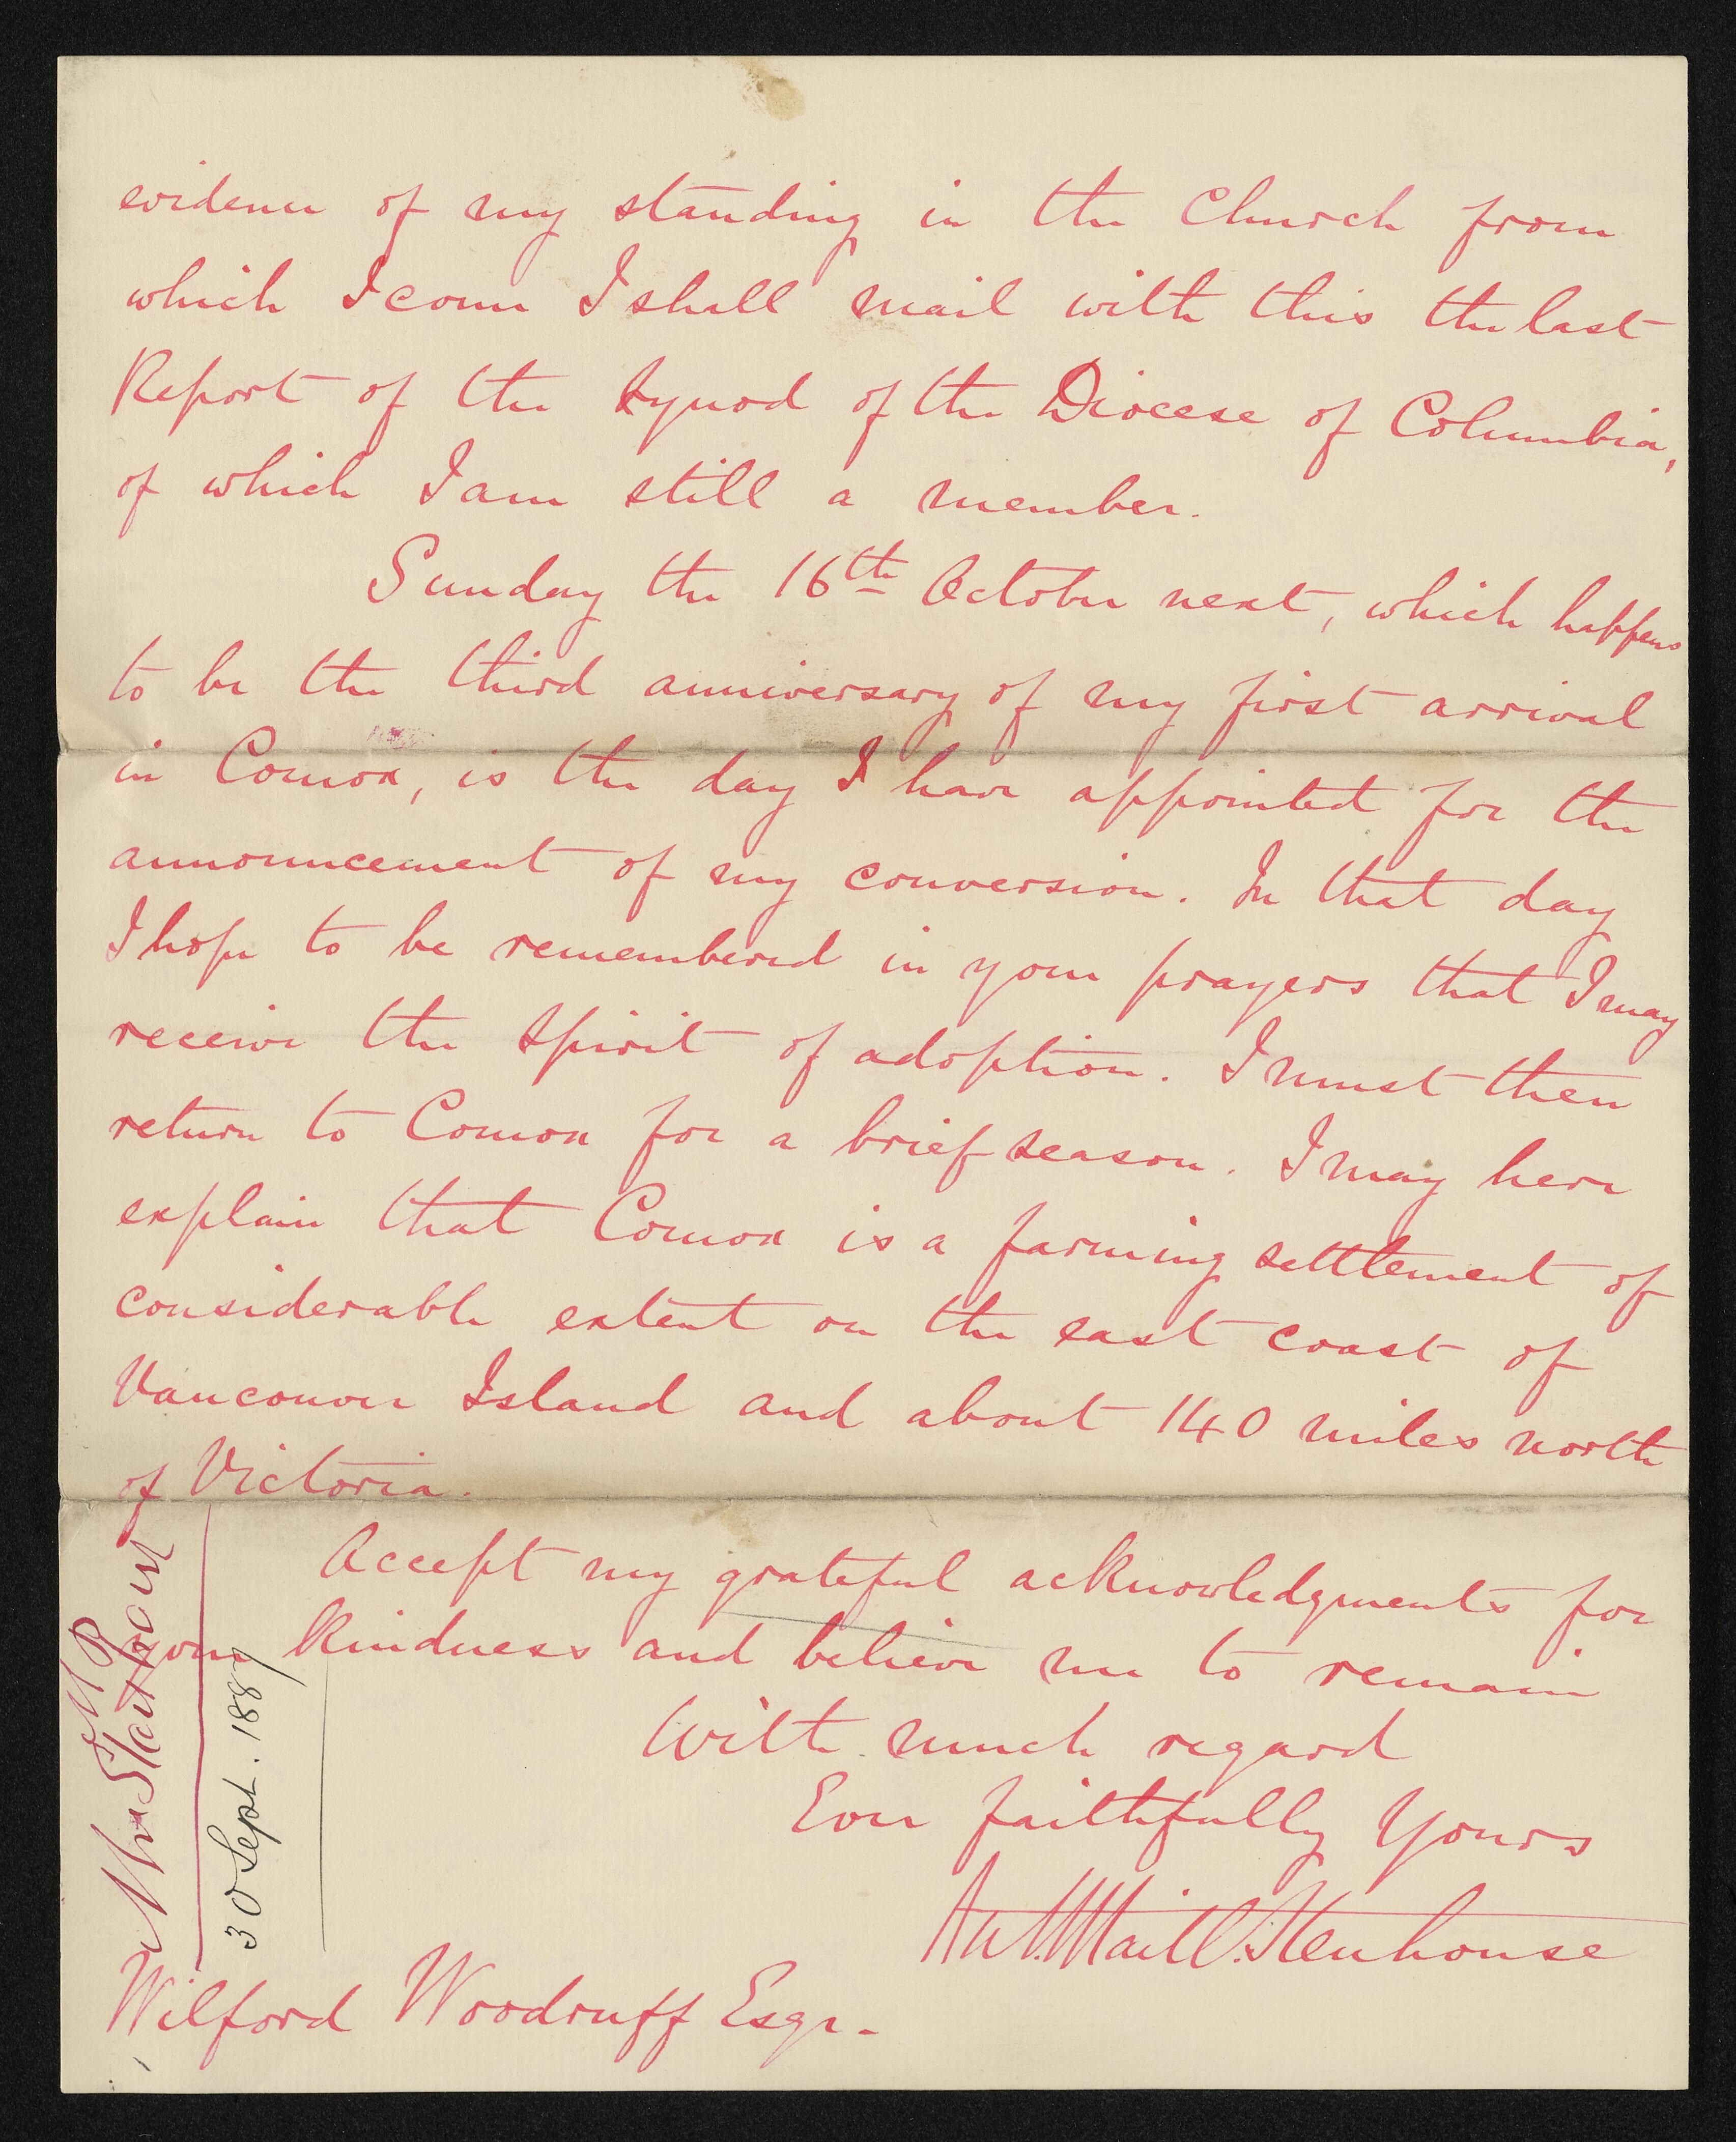 evidence of my standing in the Church from
which I come I shall mail with this the last
Report of the Synod of the Diocese of Columbia,
of which I am still a member.
Sunday the 16th October next, which happens
to be the third anniversary of my first arrival
in Comox, is the day I have appointed for the
announcement of my conversion. In that day
I hope to be remembered in your prayers that I may
receive the Spirit of adoption. I must then
return to Comox for a brief season. I may here
explain that Comox is a farming settlement of
considerable extent on the east coast of
Vancouver Island and about 140 miles north
of Victoria.
Accept my grateful acknowledgments for
your kindness and believe me to remain
With much regard
Ever faithfully Yours
Stenhouse
Wilford Woodruff Esqr.
30 Sept. 1887